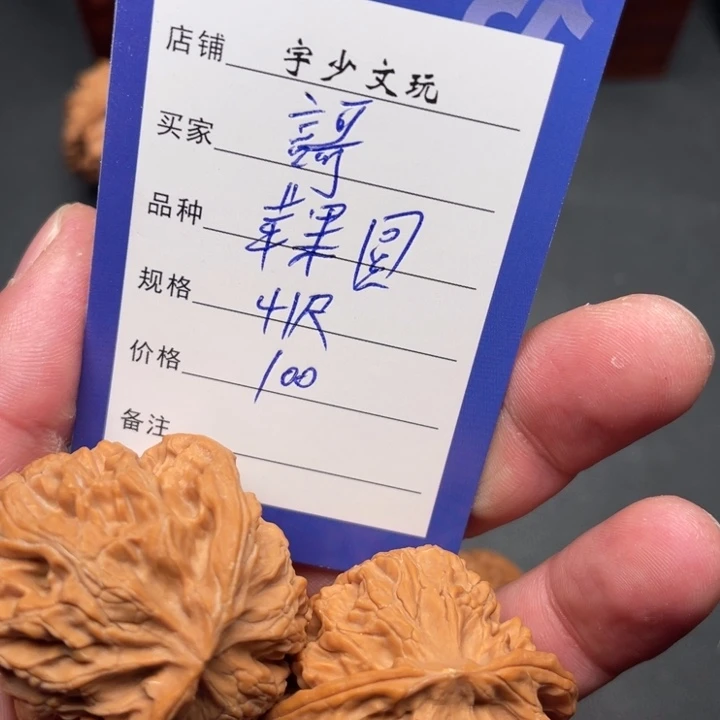 店铺 宇少文玩
买家
品种 苹果圆
规格 41R
价格 100
备注